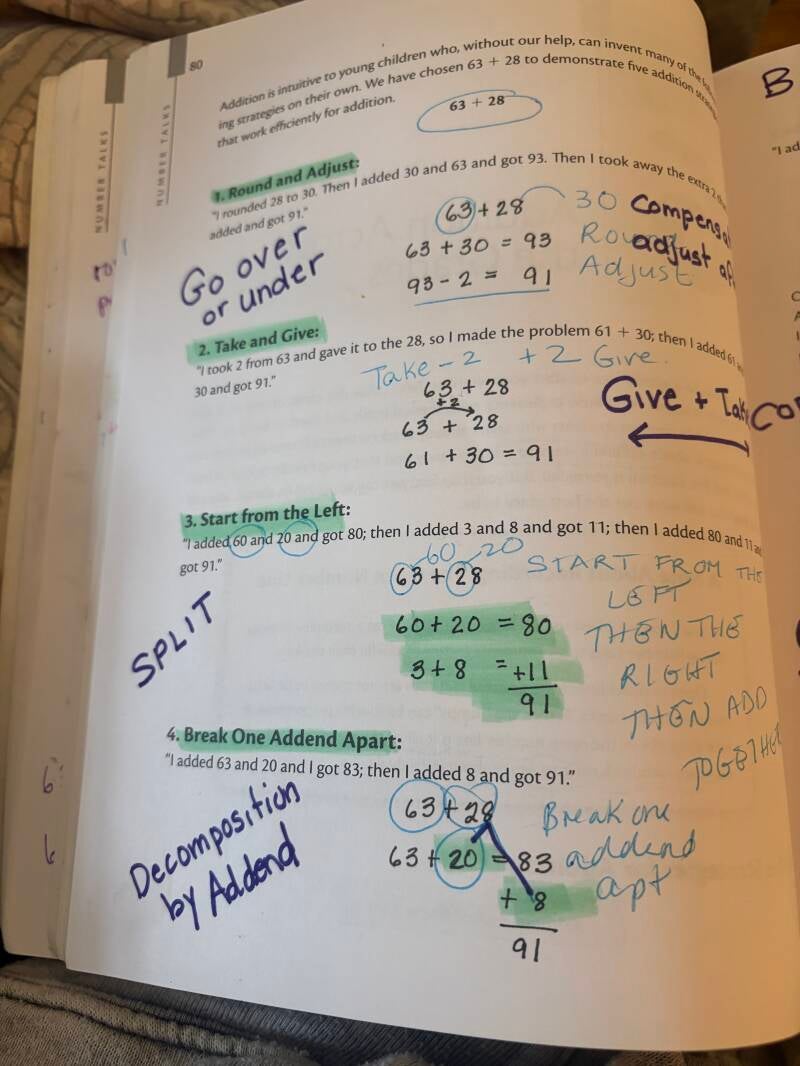 80
NUMBER TALKS
NUMBER TALKS
Addition is intuitive to young children who, without our help, can invent many of the
ing strategies on their own. We have chosen 63 + 28 to demonstrate five addition
that work efficiently for addition.
63 + 28
1. Round and Adjust:
"I rounded 28 to 30. Then I added 30 and 63 and got 93. Then I took away the extra 2
added and got 91."
63 + 28 30
63 + 30 = 93
93 - 2 = 91
Adjust
adjust
Go over
or under
2. Take and Give:
"I took 2 from 63 and gave it to the 28, so I made the problem 61 + 30; then I added 61
30 and got 91."
Take - 2 + 2 Give
63 + 28
+2
63 + 28
61 + 30 = 91
Give +
3. Start from the Left:
"I added 60 and 20 and got 80; then I added 3 and 8 and got 11; then I added 80 and 11
got 91."
60 20
63 + 28
60 + 20 = 80
3 + 8 = +11
91
START FROM THE
LEFT
THEN THE
RIGHT
THEN ADD
SPLIT
4. Break One Addend Apart:
"I added 63 and 20 and I got 83; then I added 8 and got 91."
63 + 28
63 + 20 = 83
+ 8
91
Break one
addend
apt
Decomposition
by Addend
B
"I ad
6